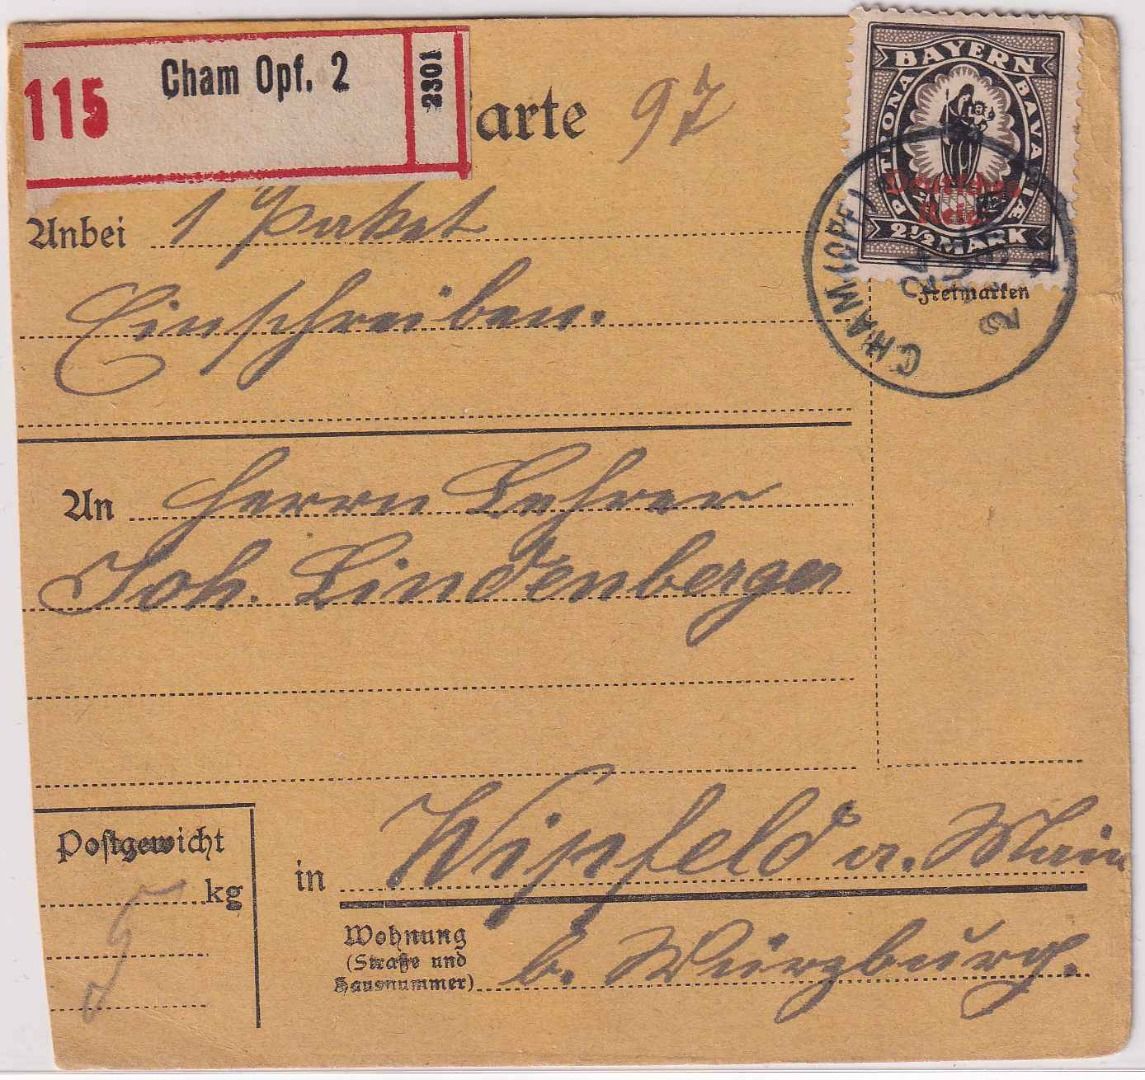 115 Cham Opf. 2 2301
arte 97
BAYERN
PATRONA BAVARIÆ
Deutsches
Reich
2½ MARK
CHAM (OPF)
24
2
Freimarken
Anbei 1 Paket
Einschreiben.
An Herrn Lehrer
Joh. Lindenberger
Postgewicht
5 kg
in Wipfeld a. Main
Wohnung
(Straße und
Hausnummer) b. Würzburg.